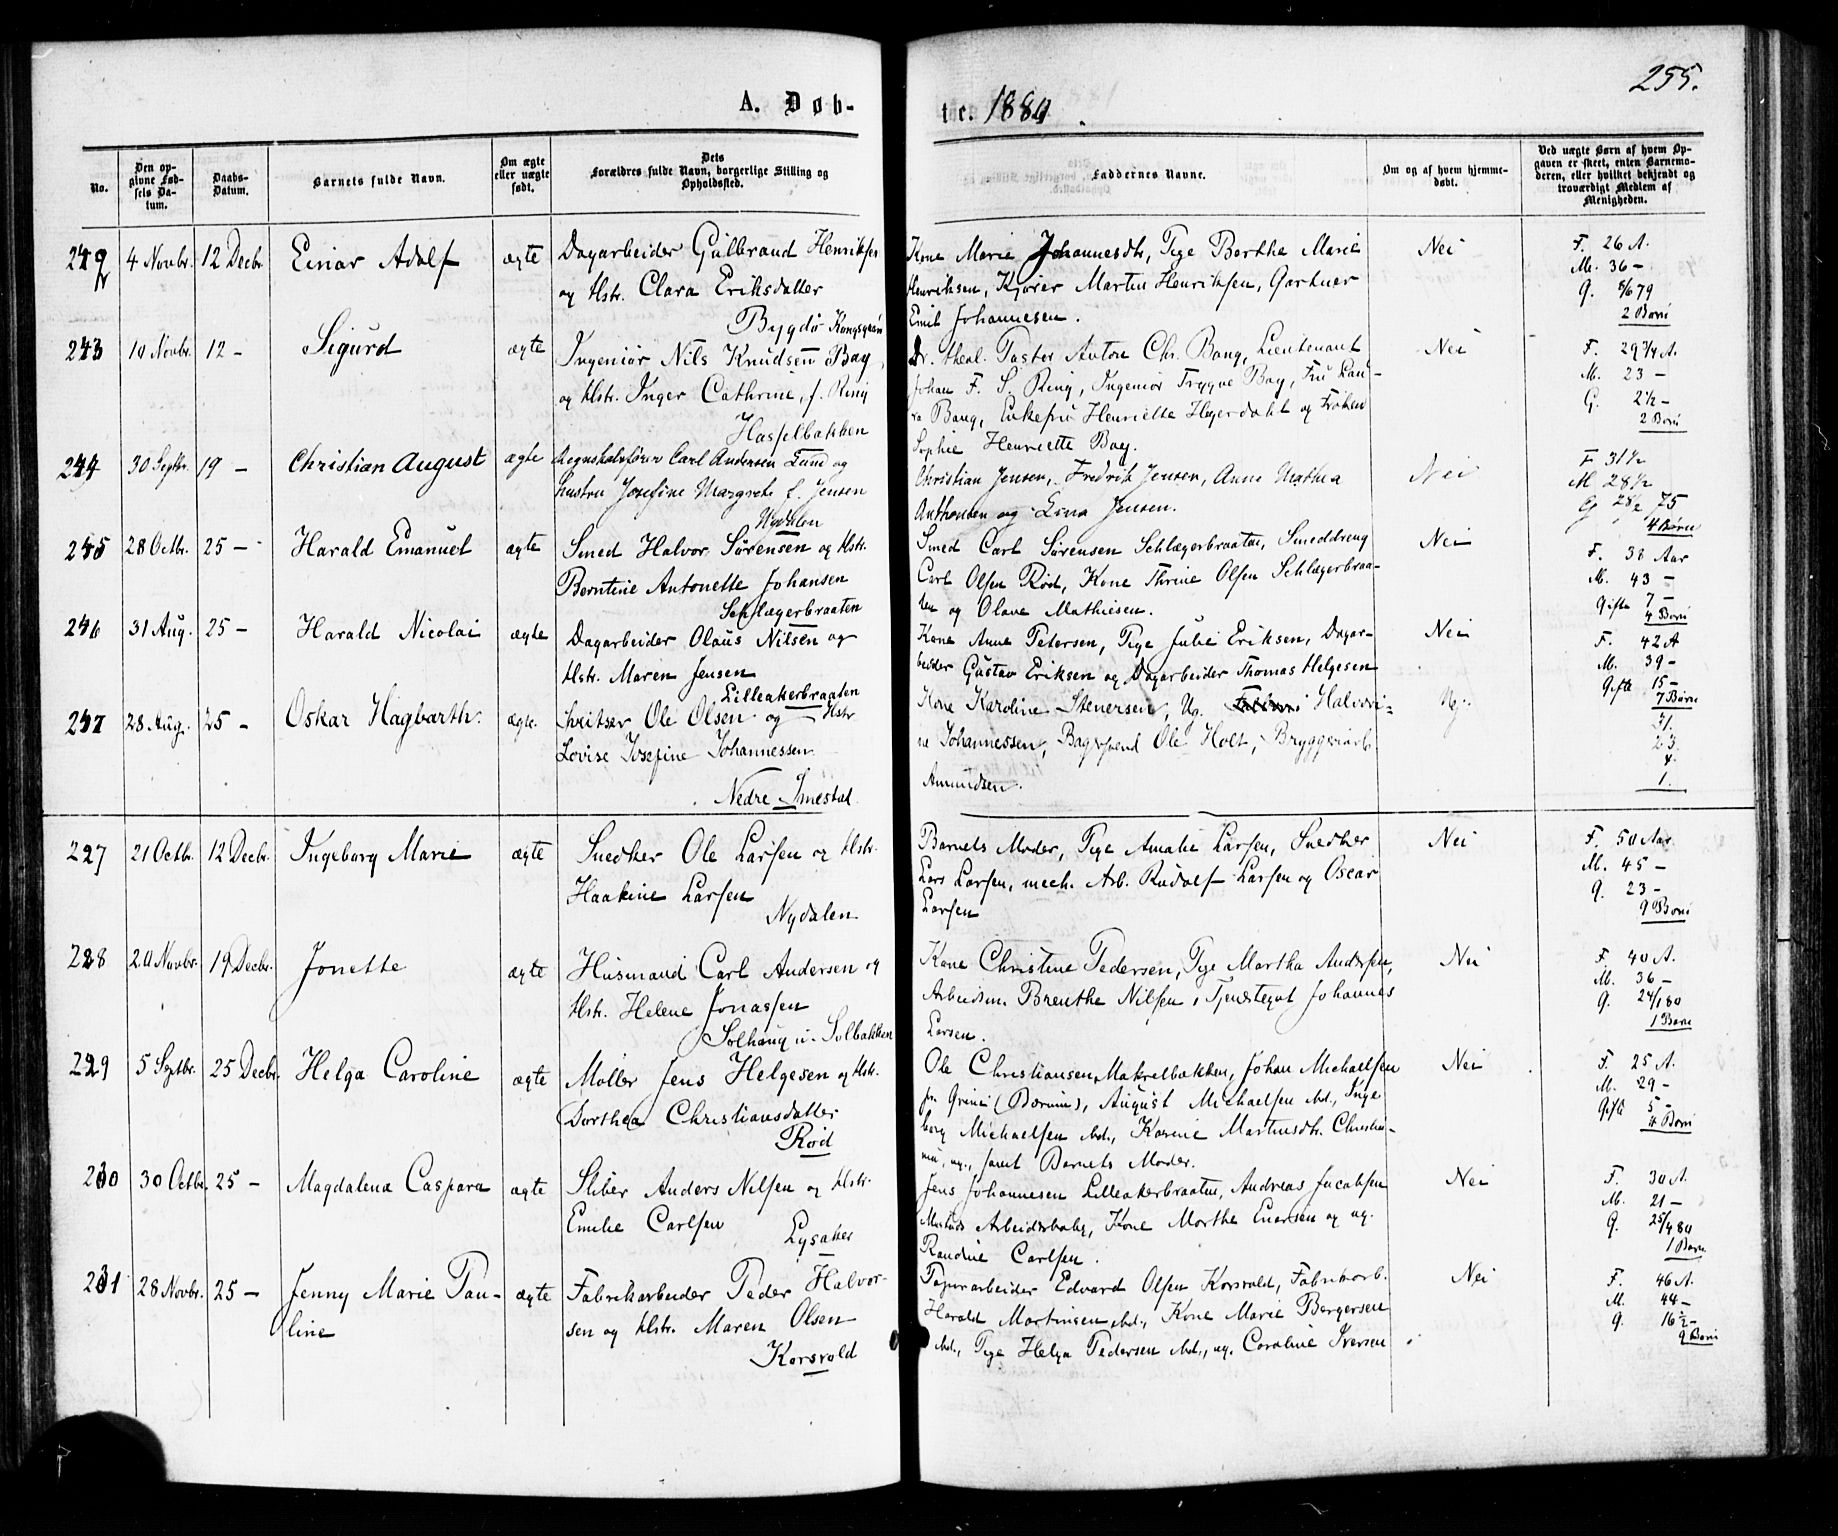 255.
A. Døb-
te. 1880.
No.
Den op-
givne Fød-
sels Da-
tum.
Daabs-
Datum.
Barnets fulde Navn.
Om ægte
eller uægte
født.
Dets
Forældres fulde Navn, borgerlige Stilling og
Opholdssted.
Faddernes Navne.
Om og af hvem hjemme-
døbt.
Ved uægte Børn af hvem Op-
gaven er skeet, enten Barnemo-
deren, eller hvilket bekjendt og
troværdigt Medlem af
Menigheden.
242 4 Novbr. 12 Decbr. Einar Adolf ægte Dagarbeider Gulbrand Henriksen
og Hstr. Clara Eriksdatter
Bygdø Kongsgaard
Kone Marie Johannesdtr, Pige Berthe Marie
Henriksen, Kjører Martin Henriksen, Gartner
Emil Johannesen.
Nei
F. 26 A.
M. 36 –
G. 8/6 79
2 Børn
243 10 Novbr. 12 – Sigurd ægte Ingeniør Nils Knudsen Bay
og Hstr. Inger Cathrine, f. Ring
Hasselbakken
Dr. theol. Pastor Anton Chr. Bang, Lieutenant
Johan F. S. Ring, Ingeniør Trygve Bay, Fru Lau-
ra Bang, Enkefru Henriette Heyerdahl og Frøken
Sophie Henriette Bay.
Nei
F. 29 3/4 A.
M. 23 –
G. 2½ –
2 Børn
244 30 Septbr. 19 – Christian August ægte Regnskabsfører Carl Andersen Lund og
hustru Josefine Margrete f. Jensen
Nydalen
Christian Jensen, Fredrik Jensen, Anne Mathea
Anthonsen og Lina Jensen.
Nei
F 31½
M 28½
G 28/2 75
4 Børn
245 28 Octbr. 25 – Harald Emanuel ægte Smed Halvor Sørensen og Hstr.
Berntine Antonette Johansen
Schlægerbraaten
Smed Carl Sørensen Schlægerbraaten, Smeddreng
Carl Olsen Rød, Kone Thrine Olsen Schlægerbraa-
ten og Olave Mathiesen.
Nei
F. 38 Aar
M. 43 –
Gifte 7 –
4 Børn
246 31 Aug. 25 – Harald Nicolai ægte Dagarbeider Olaus Nilsen og
Hstr. Maren Jensen
Lilleakerbraaten
Kone Anne Petersen, Pige Julie Eriksen, Dagar-
beider Gustav Eriksen og Dagarbeider Thomas Helgesen
Nei
F. 42 A
M. 39 –
Gifte 15 –
7 Børn
247 28 Aug. 25 – Oskar Hagbarth. ægte. Sveitser Ole Olsen og Hstr
Lovise Josefine Johannessen
Nedre Smestad.
Kone Karoline Stenersen, Ug. Halvori-
ne Johannessen, Bagsvend Ole Holt, Bryggeriarb
Amundsen.
23.
4.
1.
227 21 Octbr. 12 Decbr. Ingeborg Marie ægte Snedker Ole Larsen og Hstr.
Haakine Larsen
Nydalen
Barnets Moder, Pige Amalie Larsen, Snedker
Lars Larsen, mech. Arb. Rudolf Larsen og Oscar
Larsen
Nei
F. 50 Aar
M. 45 –
G. 23 –
9 Børn
228 20 Novbr. 19 Decbr. Jonette ægte Husmand Carl Andersen og
Hstr. Helene Jonassen
Solhaug u. Solbakken
Kone Christine Pedersen, Pige Martha Andersen,
Arbeidsm. Brenthe Nilsen, Tjenstegut Johannes
Larsen.
Nei
F. 40 A.
M. 36 –
G. 24/1 80
1 Barn
229 5 Septbr. 25 Decbr. Helga Caroline ægte Møller Jens Helgesen og Hstr.
Dorthea Christiansdatter
Rød
Ole Christiansen Makrelbakken, Johan Michaelsen
fra Grini (Bærum), August Michaelsen ibd., Inge
borg Michaelsen ibd., Karine Martinsdtr. Christia-
nia, ug., samt Barnets Moder.
Nei
F. 25 A.
M. 29 –
Gifte 5 –
4 Børn
230 30 Octbr. 25 – Magdalena Caspara ægte Sliber Anders Nilsen og Hstr.
Emilie Carlsen
Lysaker
Jens Johannesen Lilleakerbraaten, Andreas Jacobsen
Mustads Arbeiderbolig, Kone Marthe Enersen og ug.
Randine Carlsen.
Nei
F. 30 A.
M. 21 –
G. 25/4 80
1 Barn
231 28 Novbr. 25 – Jenny Marie Pau- ægte Fabrikarbeider Peder Halvor-
line sen og Hstr. Maren Olsen
Korsvold
Papirarbeider Edvard Olsen Korsvold, Fabrikarb.
Harald Martinsen ibd., Kone Marie Bergersen
ibd., Pige Helga Pedersen ibd., ug. Caroline Iversen
Nei
F. 46 A.
M. 44 –
G. 16½ –
9 Børn